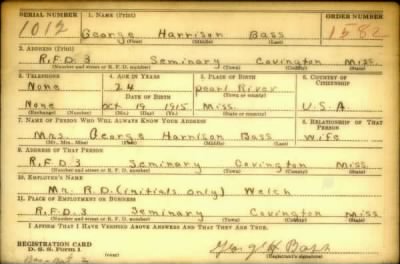 SERIAL NUMBER 1. NAME (Print) ORDER NUMBER
1012 George Harrison Bass 1582
(First) (Middle) (Last)
2. ADDRESS (Print)
R.F.D. 3 Seminary Covington Miss.
(Number and street or R. F. D. number) (Town) (County) (State)
3. TELEPHONE 4. AGE IN YEARS 5. PLACE OF BIRTH 6. COUNTRY OF CITIZENSHIP
None 24 Pearl River
DATE OF BIRTH (Town or county)
None Oct 19 1915 Miss. U.S.A.
(Exchange) (Number) (Mo.) (Day) (Yr.) (State or country)
7. NAME OF PERSON WHO WILL ALWAYS KNOW YOUR ADDRESS 8. RELATIONSHIP OF THAT PERSON
Mrs. George Harrison Bass Wife
(Mr., Mrs., Miss) (First) (Middle) (Last)
9. ADDRESS OF THAT PERSON
R.F.D. 3 Seminary Covington Miss.
(Number and street or R. F. D. number) (Town) (County) (State)
10. EMPLOYER'S NAME
Mr. R.D. (initials only) Welch
11. PLACE OF EMPLOYMENT OR BUSINESS
R.F.D. 3 Seminary Covington Miss.
(Number and street or R. F. D. number) (Town) (County) (State)
I AFFIRM THAT I HAVE VERIFIED ABOVE ANSWERS AND THAT THEY ARE TRUE.
REGISTRATION CARD
D. S. S. Form 1 George H Bass
(Registrant's signature)